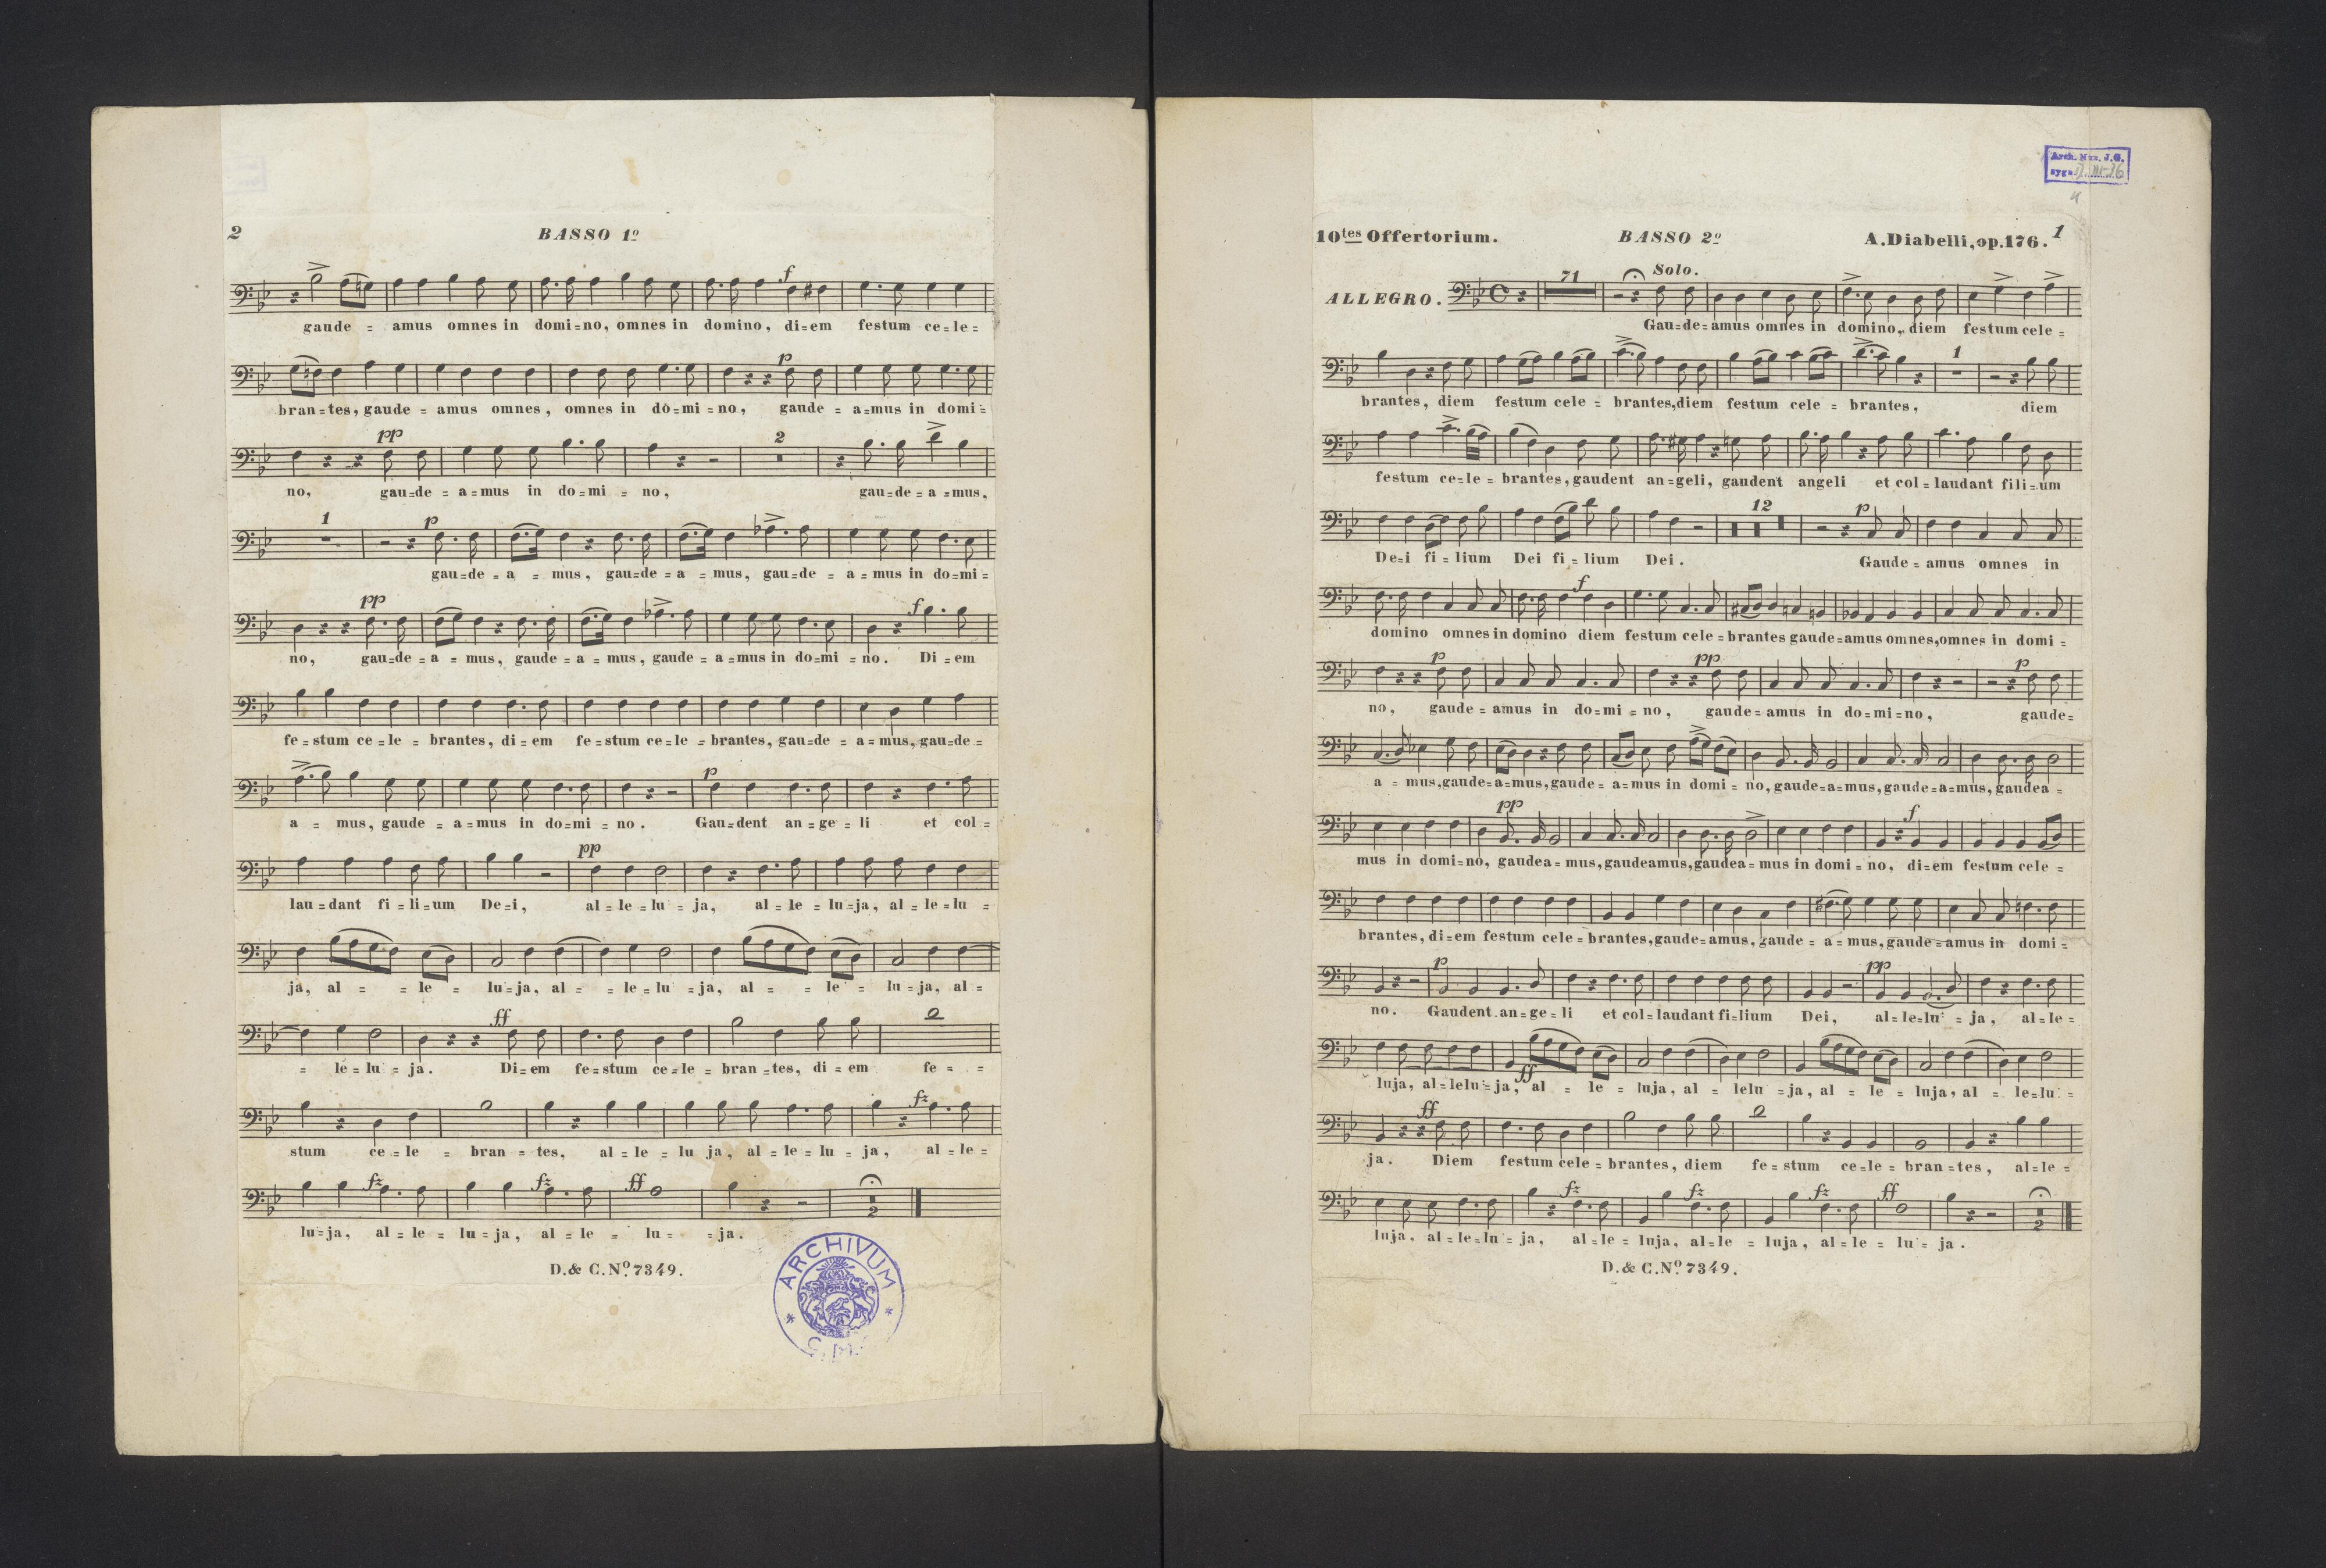 2
BASSO 1º
f
gaude = amus omnes in domi=no, omnes in domino, di=em festum ce=le=
p
bran=tes, gaude = amus omnes, omnes in do=mi=no, gaude = a=mus in domi=
pp 2
no, gau=de = a=mus in do=mi = no, gau=de=a=mus.
1 p
gau=de = a = mus, gau=de = a = mus, gau=de = a=mus in do=mi=
pp f
no, gau=de = a = mus, gaude = a = mus, gaude = a=mus in do=mi = no. Di = em
fe=stum ce=le = brantes, di=em fe=stum ce=le = brantes, gau=de = a=mus, gau=de=
p
a = mus, gaude = a=mus in do=mi = no. Gau=dent an=ge=li et col=
pp
lau=dant fi=li=um De=i, al=le=lu=ja, al=le=lu=ja, al=le=lu=
ja, al = = le = lu=ja, al = = le=lu=ja, al = = le = lu=ja, al=
ff
= le=lu = ja. Di=em fe=stum ce=le = bran=tes, di=em fe = =
fz
stum ce=le = bran = tes, al=le = lu ja, al=le=lu=ja, al=le=
fz fz ff 2
lu=ja, al=le = lu=ja, al=le = lu = =ja.
D.& C.Nº 7349.
ARCHIVUM
Arch. Muz. J.G.
10tes Offertorium. BASSO 2º A.Diabelli, op.176. 1
ALLEGRO. C 71 Solo.
Gau=de=amus omnes in domino, diem festum cele =
1
brantes, diem festum cele = brantes, diem festum cele = brantes, diem
festum ce=le = brantes, gaudent an=geli, gaudent angeli et col=laudant fili=um
12 p
De=i fi=lium Dei fi=lium Dei. Gaude = amus omnes in
f
domino omnes in domino diem festum cele=brantes gaude=amus omnes, omnes in domi=
p pp p
no, gaude = amus in do=mi = no, gaude=amus in do=mi=no, gaude=
a = mus, gaude=a=mus, gaude= a=mus in domi = no, gaude=a=mus, gaude=a=mus, gaudea=
pp f
mus in domi=no, gaudea=mus, gaudeamus, gaudea=mus in domi = no, di=em festum cele =
brantes, di=em festum cele=brantes, gaude=amus, gaude = a=mus, gaude=amus in domi=
p pp
no. Gaudent an=ge=li et col=laudant fi=lium Dei, al=le=lu = ja, al=le=
ff
luja, al=lelu=ja, al = le = luja, al = lelu = ja, al = le = luja, al = le=lu =
ff
ja. Diem festum cele = brantes, diem fe=stum ce=le = bran=tes, al=le=
fz fz fz ff 2
luja, al=le=lu = ja, al=le = luja, al=le = luja, al=le = lu = ja.
D.& C.Nº 7349.